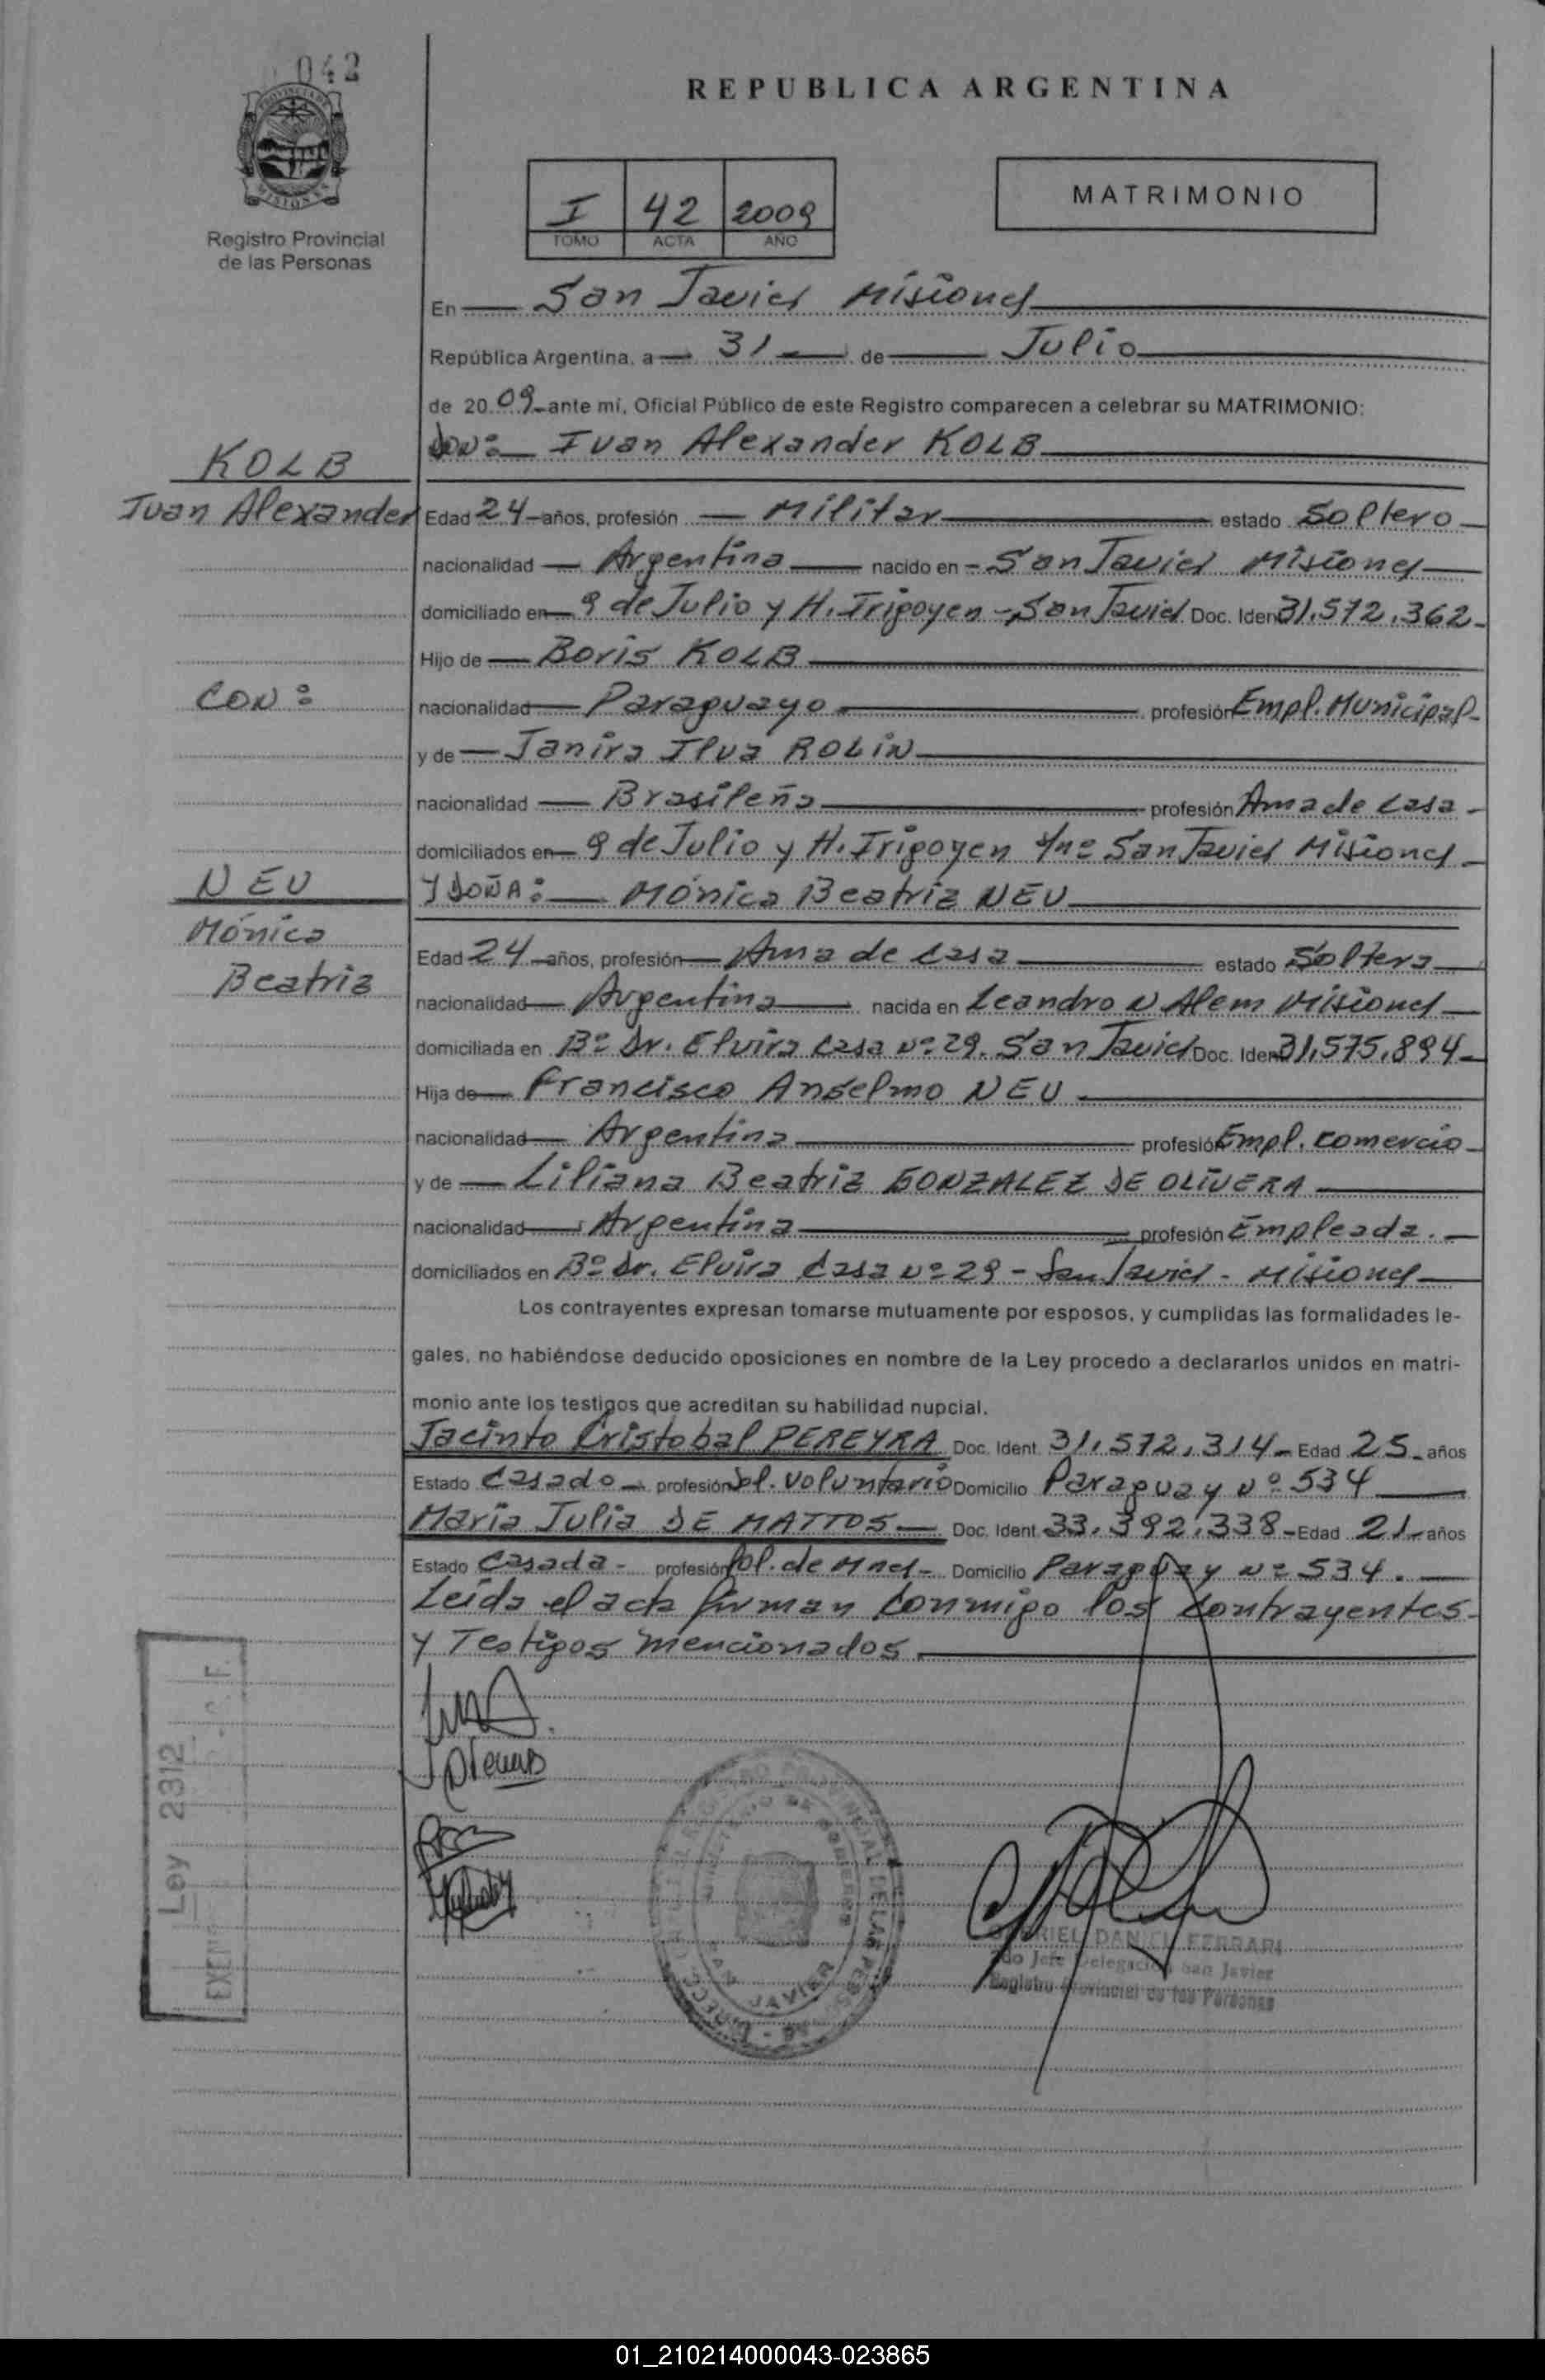 042
REPUBLICA ARGENTINA
Registro Provincial
de las Personas
I 42 2009
TOMO ACTA AÑO
MATRIMONIO
En San Javier Misiones
República Argentina, a 31 de Julio
de 2009 ante mí, Oficial Público de este Registro comparecen a celebrar su MATRIMONIO:
DON: Ivan Alexander KOLB
KOLB
Ivan Alexander
Edad 24 años, profesión Militar estado Soltero
nacionalidad Argentina nacido en San Javier Misiones
domiciliado en 9 de Julio y H. Irigoyen - San Javier Doc. Iden 31.572.362
Hijo de Boris KOLB
CON:
nacionalidad Paraguayo profesión Empl. Municipal
y de Janira Ilva ROLIN
nacionalidad Brasileña profesión Ama de casa
domiciliados en 9 de Julio y H. Irigoyen San Javier Misiones
NEU
Y DOÑA: Mónica Beatriz NEU
Mónica
Beatriz
Edad 24 años, profesión Ama de casa estado Soltera
nacionalidad Argentina nacida en Leandro N Alem Misiones
domiciliada en Bº Dr. Elvira casa Nº 29. San Javier Doc. Iden 31.575.894
Hija de Francisco Anselmo NEU
nacionalidad Argentina profesión Empl. comercio
y de Liliana Beatriz GONZALEZ DE OLIVERA
nacionalidad Argentina profesión Empleada.
domiciliados en Bº Dr. Elvira Casa Nº 29 - San Javier - Misiones
Los contrayentes expresan tomarse mutuamente por esposos, y cumplidas las formalidades le-
gales, no habiéndose deducido oposiciones en nombre de la Ley procedo a declararlos unidos en matri-
monio ante los testigos que acreditan su habilidad nupcial.
Jacinto Cristobal PEREYRA Doc. Ident. 31.572.314 Edad 25 años
Estado Casado profesión Sol. Voluntario Domicilio Paraguay Nº 534
Maria Julia DE MATTOS Doc. Ident. 33.392.338 Edad 21 años
Estado Casada profesión Pol. de Mnes Domicilio Paraguay Nº 534.
Leida el acta firman conmigo los contrayentes
y Testigos mencionados
Ley 2312
DANIEL FERRARI
Jefe Delegación San Javier
Registro Provincial de las Personas
SAN JAVIER
01_210214000043-023865